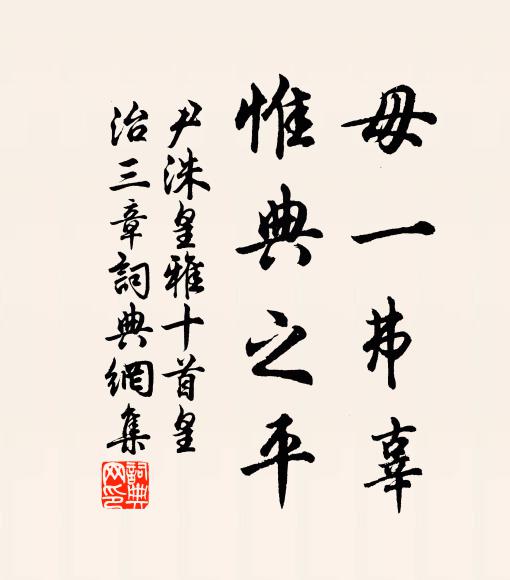 毋一弗辜
惟典之平
尹洙皇雅十首皇
治三章詞典網集
詞典網印